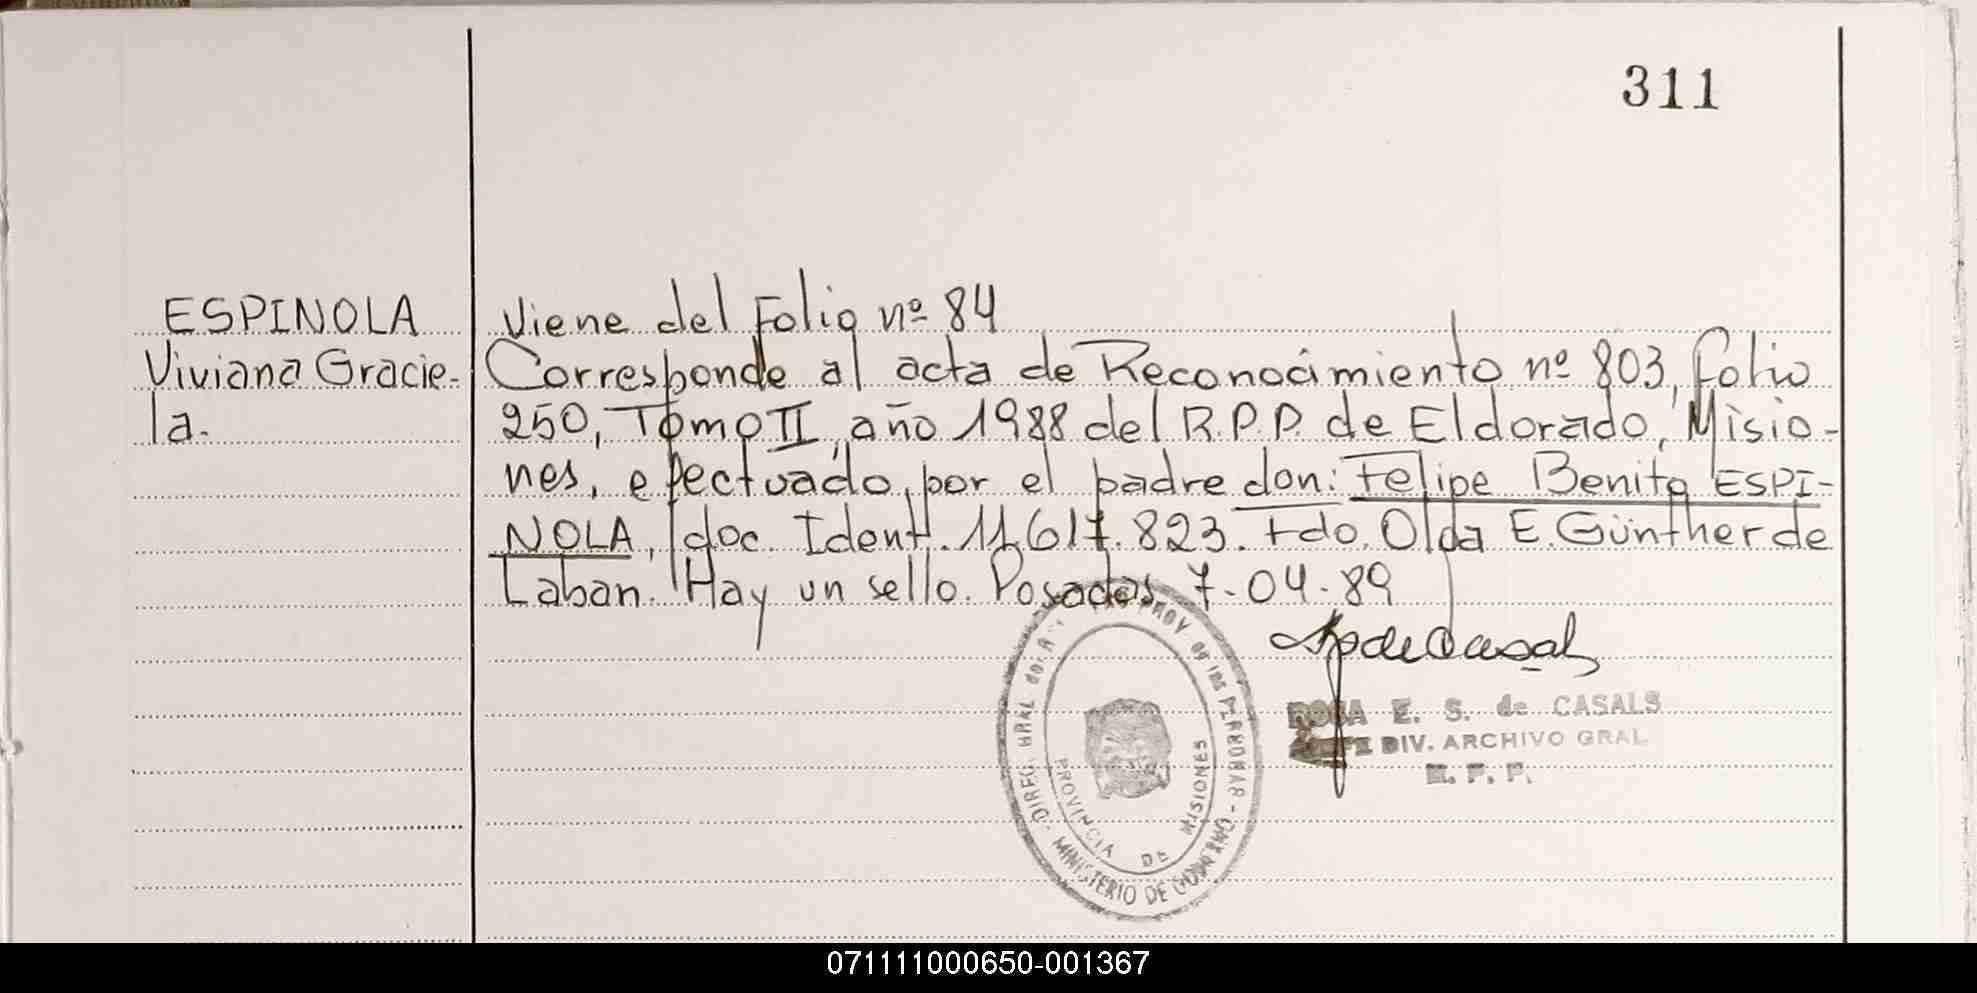 311
ESPINOLA
Viviana Gracie-
la.
Viene del Folio nº 84
Corresponde al acta de Reconocimiento nº 803, folio
250, Tomo II, año 1988 del R.P.P. de Eldorado, Misio-
nes, efectuado, por el padre don: Felipe Benito ESPI-
NOLA, doc. Ident. 11.617.823. Fdo. Olda E. Günther de
Laban. Hay un sello. Posadas, 7-04-89
ROSA E. S. de CASALS
JEFE DIV. ARCHIVO GRAL
R. P. P.
DIREC. GRAL DEL PROV de las PERSONAS
MINISTERIO DE GOBIERNO
PROVINCIA DE MISIONES
071111000650-001367